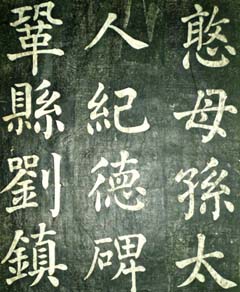 憨母孫太
人紀德碑
鞏縣劉鎮